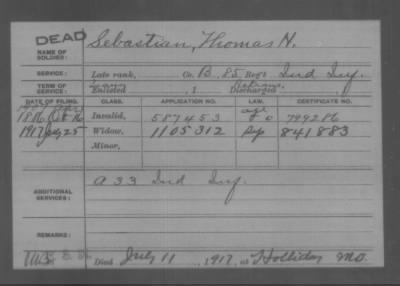 DEAD
NAME OF SOLDIER:
Sebastian, Thomas N.
SERVICE:
Late rank, Co. B, 85 Reg't Ind Inf.
TERM OF SERVICE:
Enlisted , 1 Discharged , 1
DATE OF FILING. CLASS. APPLICATION NO. LAW. CERTIFICATE NO.
1886 Invalid, 587453
1917 July 25 Widow, 1105312 841883
Minor,
ADDITIONAL SERVICES:
A 33 Ind Inf.
REMARKS:
Died July 11, 1917, at Holliday Mo.